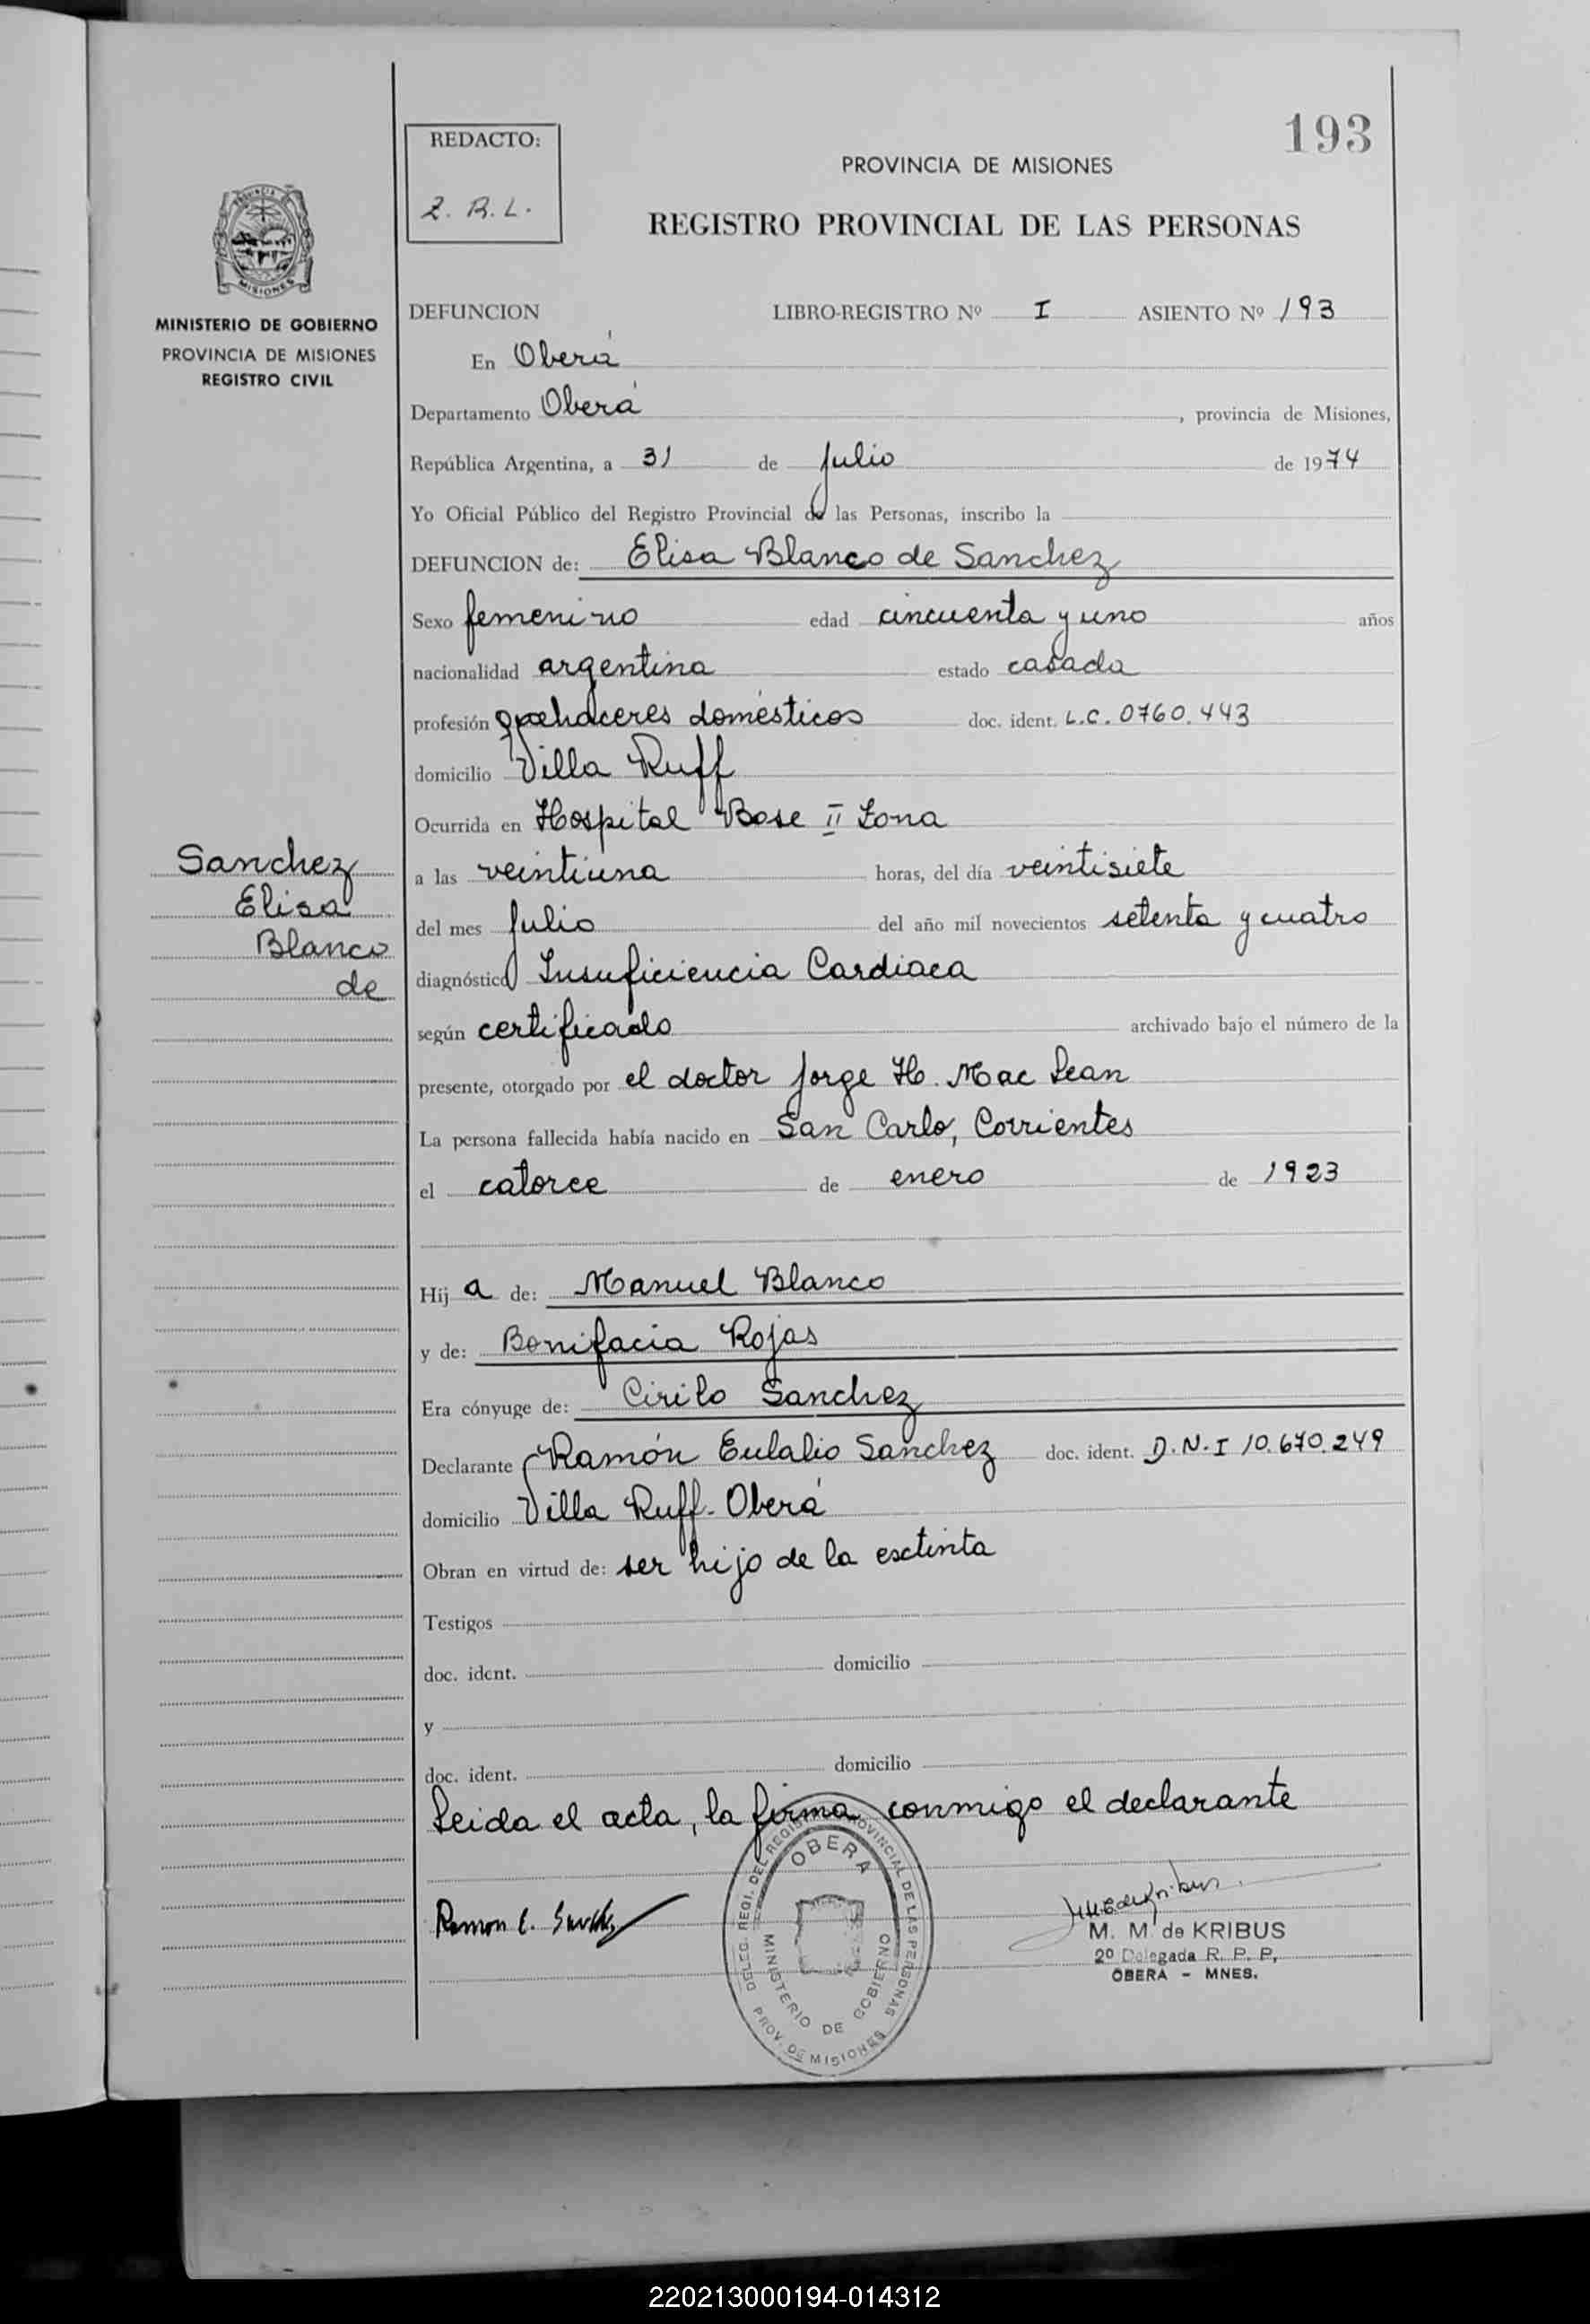 193
REDACTO:
Z. R. L.
PROVINCIA DE MISIONES
REGISTRO PROVINCIAL DE LAS PERSONAS
MISIONES
MINISTERIO DE GOBIERNO
PROVINCIA DE MISIONES
REGISTRO CIVIL
DEFUNCION LIBRO-REGISTRO Nº I ASIENTO Nº 193
En Oberá
Departamento Oberá, provincia de Misiones,
República Argentina, a 31 de Julio de 1974
Yo Oficial Público del Registro Provincial de las Personas, inscribo la
DEFUNCION de: Elisa Blanco de Sanchez
Sexo femenino edad cincuenta y uno años
nacionalidad argentina estado casada
profesión quehaceres domésticos doc. ident. L.C. 0760.443
domicilio Villa Ruff
Ocurrida en Hospital Base II Zona
Sanchez
Elisa
Blanco
de
a las veintiuna horas, del día veintisiete
del mes Julio del año mil novecientos setenta y cuatro
diagnóstico Insuficiencia Cardiaca
según certificado archivado bajo el número de la
presente, otorgado por el doctor Jorge H. Mac Lean
La persona fallecida había nacido en San Carlo, Corrientes
el catorce de enero de 1923
Hij a de: Manuel Blanco
y de: Bonifacia Rojas
Era cónyuge de: Cirilo Sanchez
Declarante Ramón Eulalio Sanchez doc. ident. D.N.I 10.670.249
domicilio Villa Ruff - Oberá
Obran en virtud de: ser hijo de la esctinta
Testigos
doc. ident. domicilio
y
doc. ident. domicilio
Leida el acta, la firma conmigo el declarante
Ramon E. Sanchez
DELEG. REGI. DEL REGISTRO PROVINCIAL DE LAS PERSONAS
OBERA
MINISTERIO DE GOBIERNO
PROV. DE MISIONES
M. M. de KRIBUS
2º Delegada R. P. P.
OBERA - MNES.
220213000194-014312